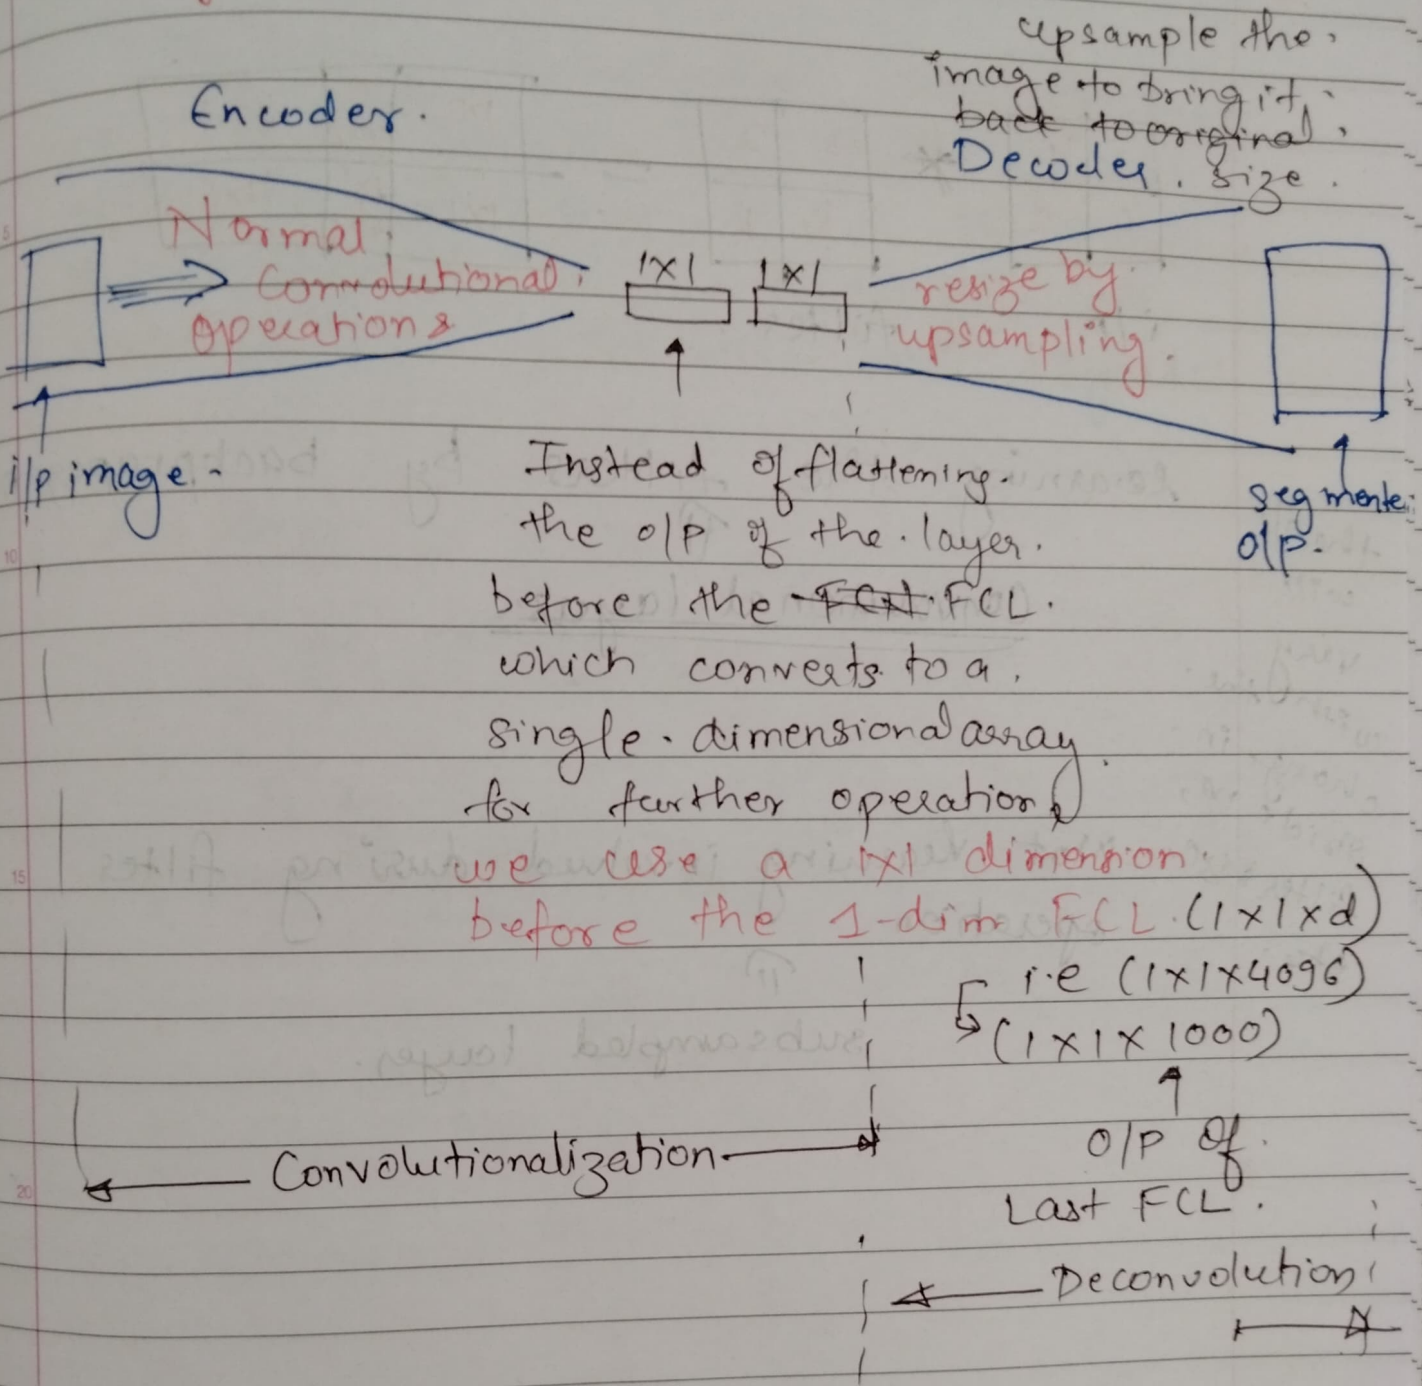 upsample the.
image to bring it
back to original.
Encoder.
Decoder. size.
Normal
Convolutional
operations
1x1
1x1
resize by
upsampling.
i/p image-
segmente
o/p.
Instead of flattening.
the o/p of the. layer.
before the FCN. FCL.
which converts to a.
single. dimensional array.
for further operation
we use a 1x1 dimension.
before the 1-dim FCL. (1x1xd)
i.e (1x1x4096)
(1x1x1000)
o/p of.
Last FCL.
Convolutionalization
Deconvolution
5
10
15
20